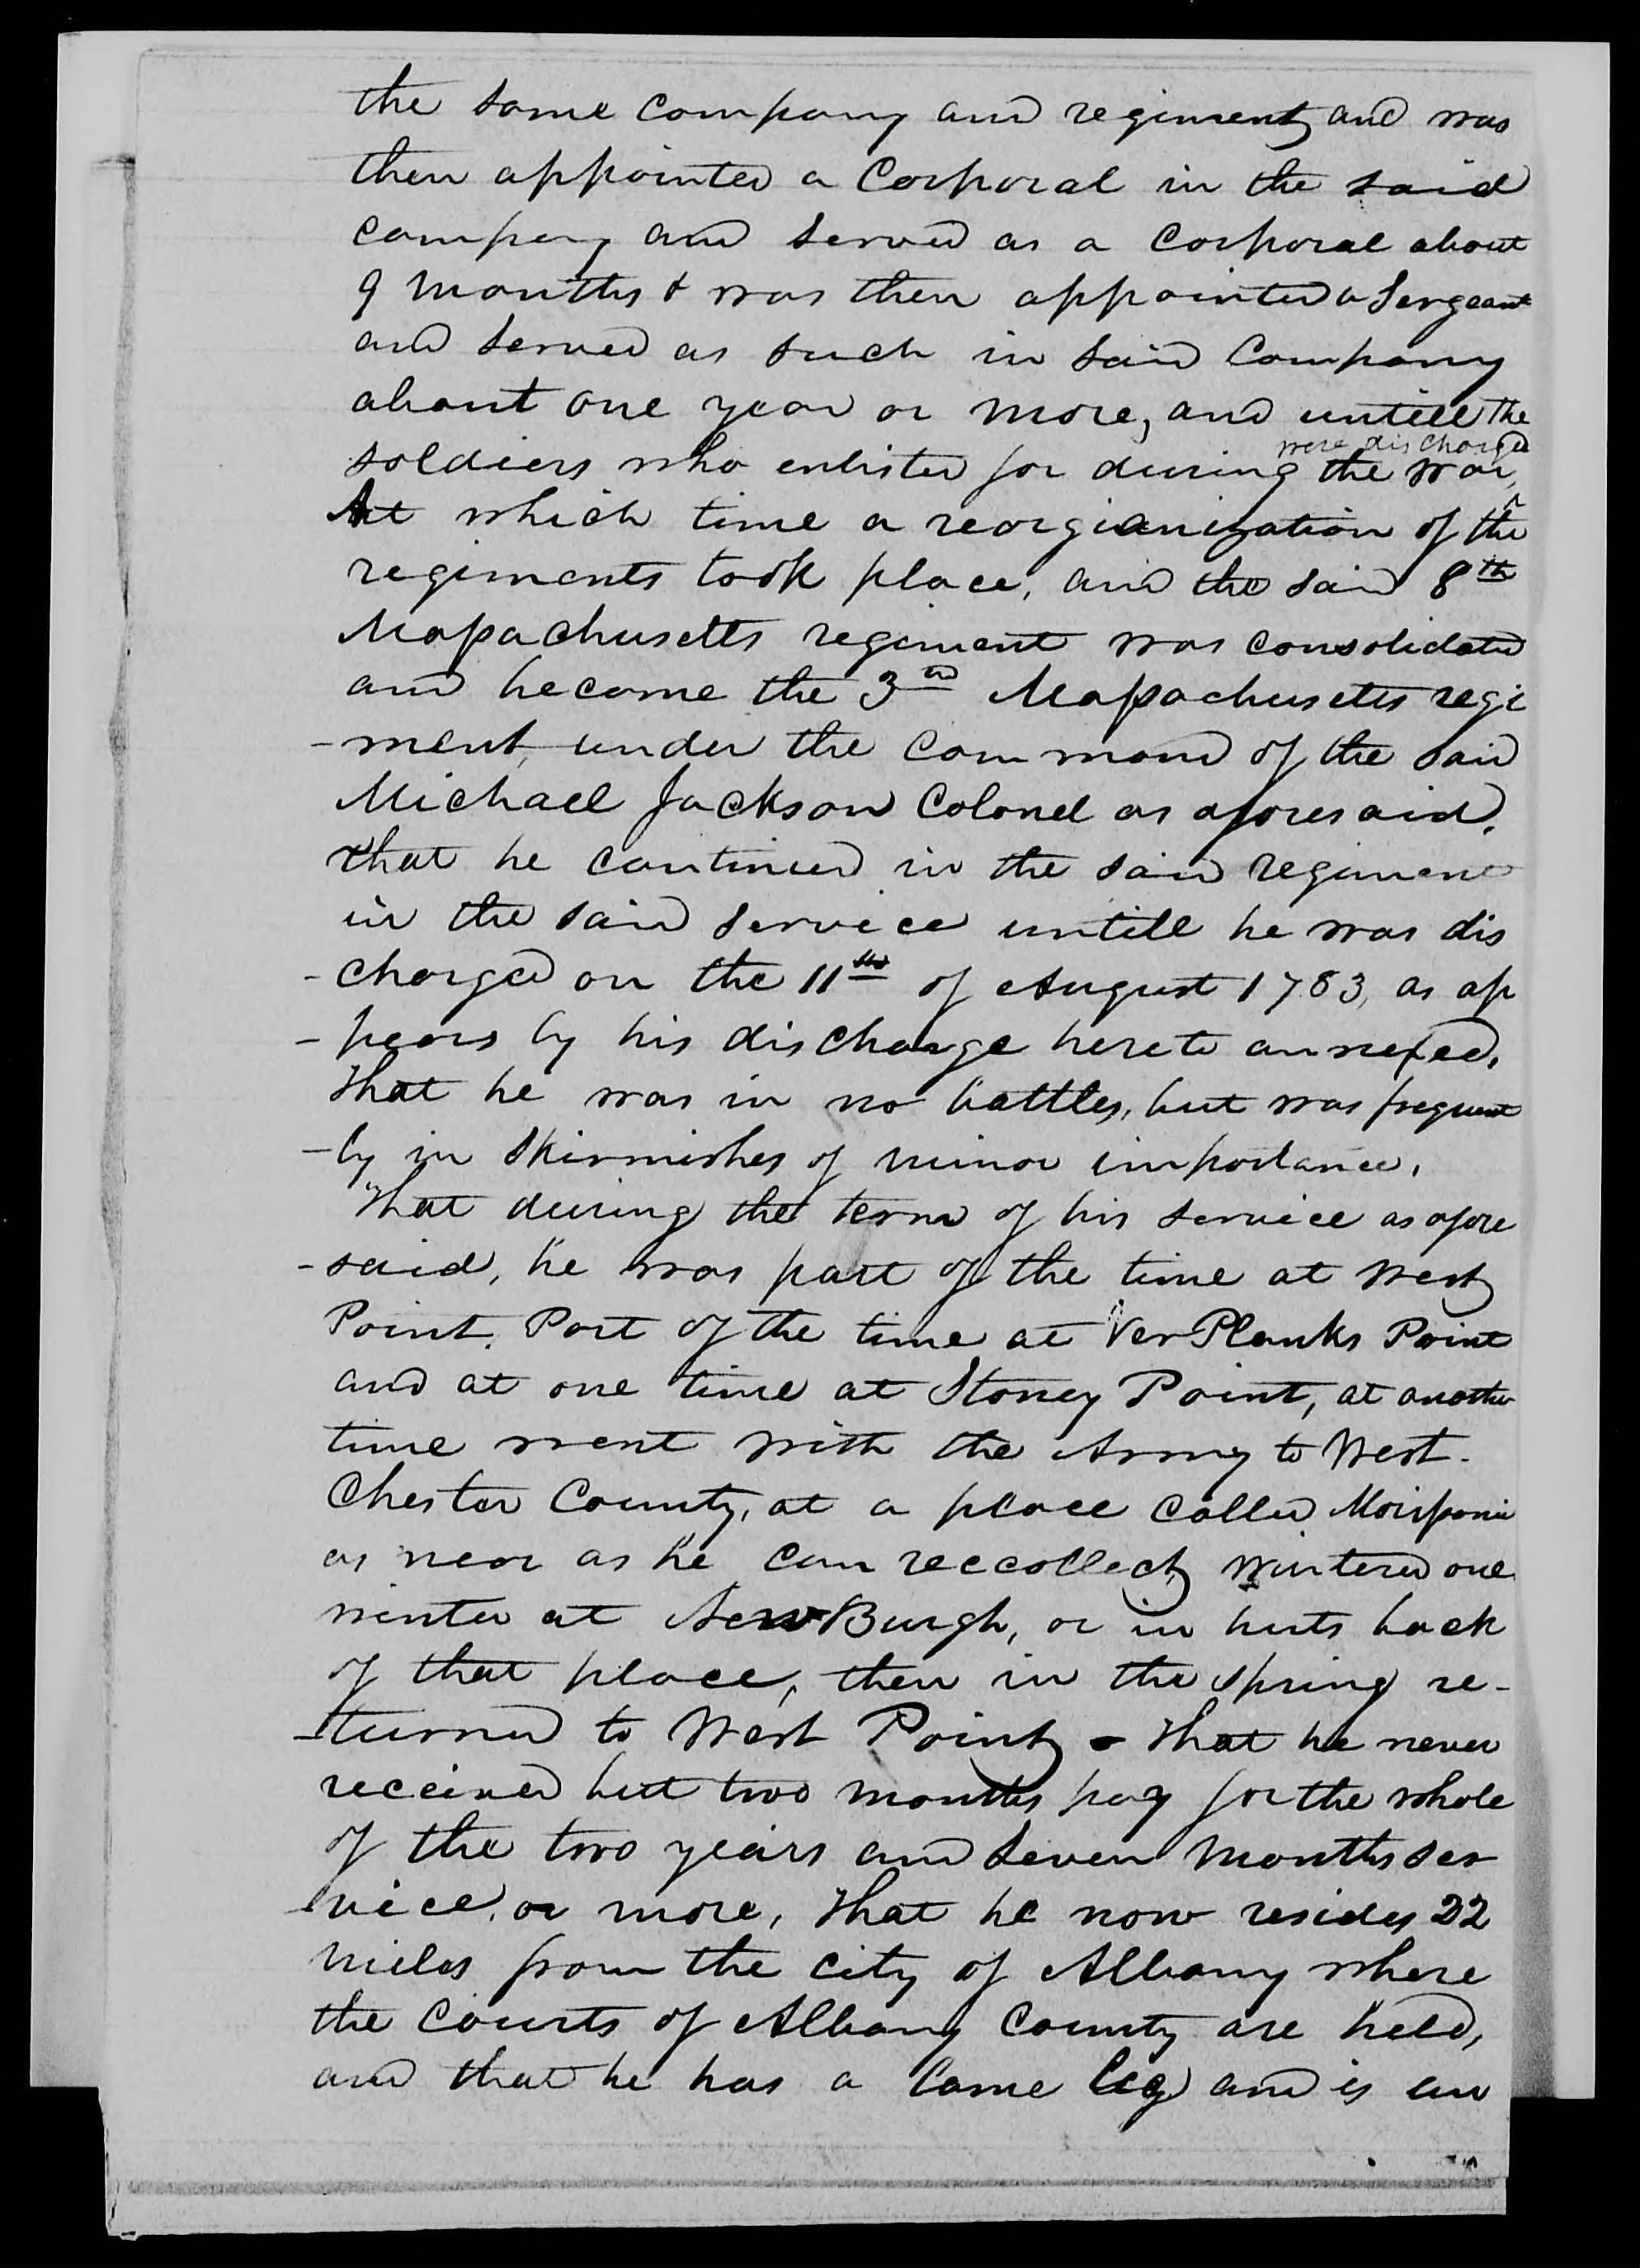 the same company and regiment, and was
then appointed a Corporal in the said
company and served as a Corporal about
9 months & was then appointed a Sergeant
and served as such in said Company
about one year or more, and untill the
were discharged
soldiers who enlisted for during the war,
At which time a reorgianization of the
regiments took place, and the said 8th
Massachusetts regiment was consolidated
and become the 3rd Massachusetts regi
-ment, under the command of the said
Michael Jackson Colonel as aforesaid,
that he continued in the said regiment
in the said service untill he was dis
-charged on the 11th of August 1783, as ap
-pears by his discharge hereto annexed,
that he was in no battles, but was frequent
-ly in skirmishes of minor importance,
that during the term of his service as afore
-said, he was part of the time at West
Point, Part of the time at VerPlanks Point
and at one time at Stoney Point, at another
time went with the Army to West-
Chester County, at a place called Morissania
as near as he can reccollect, wintered one
winter at NewBurgh, or in huts back
of that place, then in the spring re-
-turned to West Point, - that he never
received but two months pay for the whole
of the two years and seven months ser
-vice, or more, that he now resides 22
miles from the city of Albany where
the Courts of Albany County are held,
and that he has a lame leg and is un